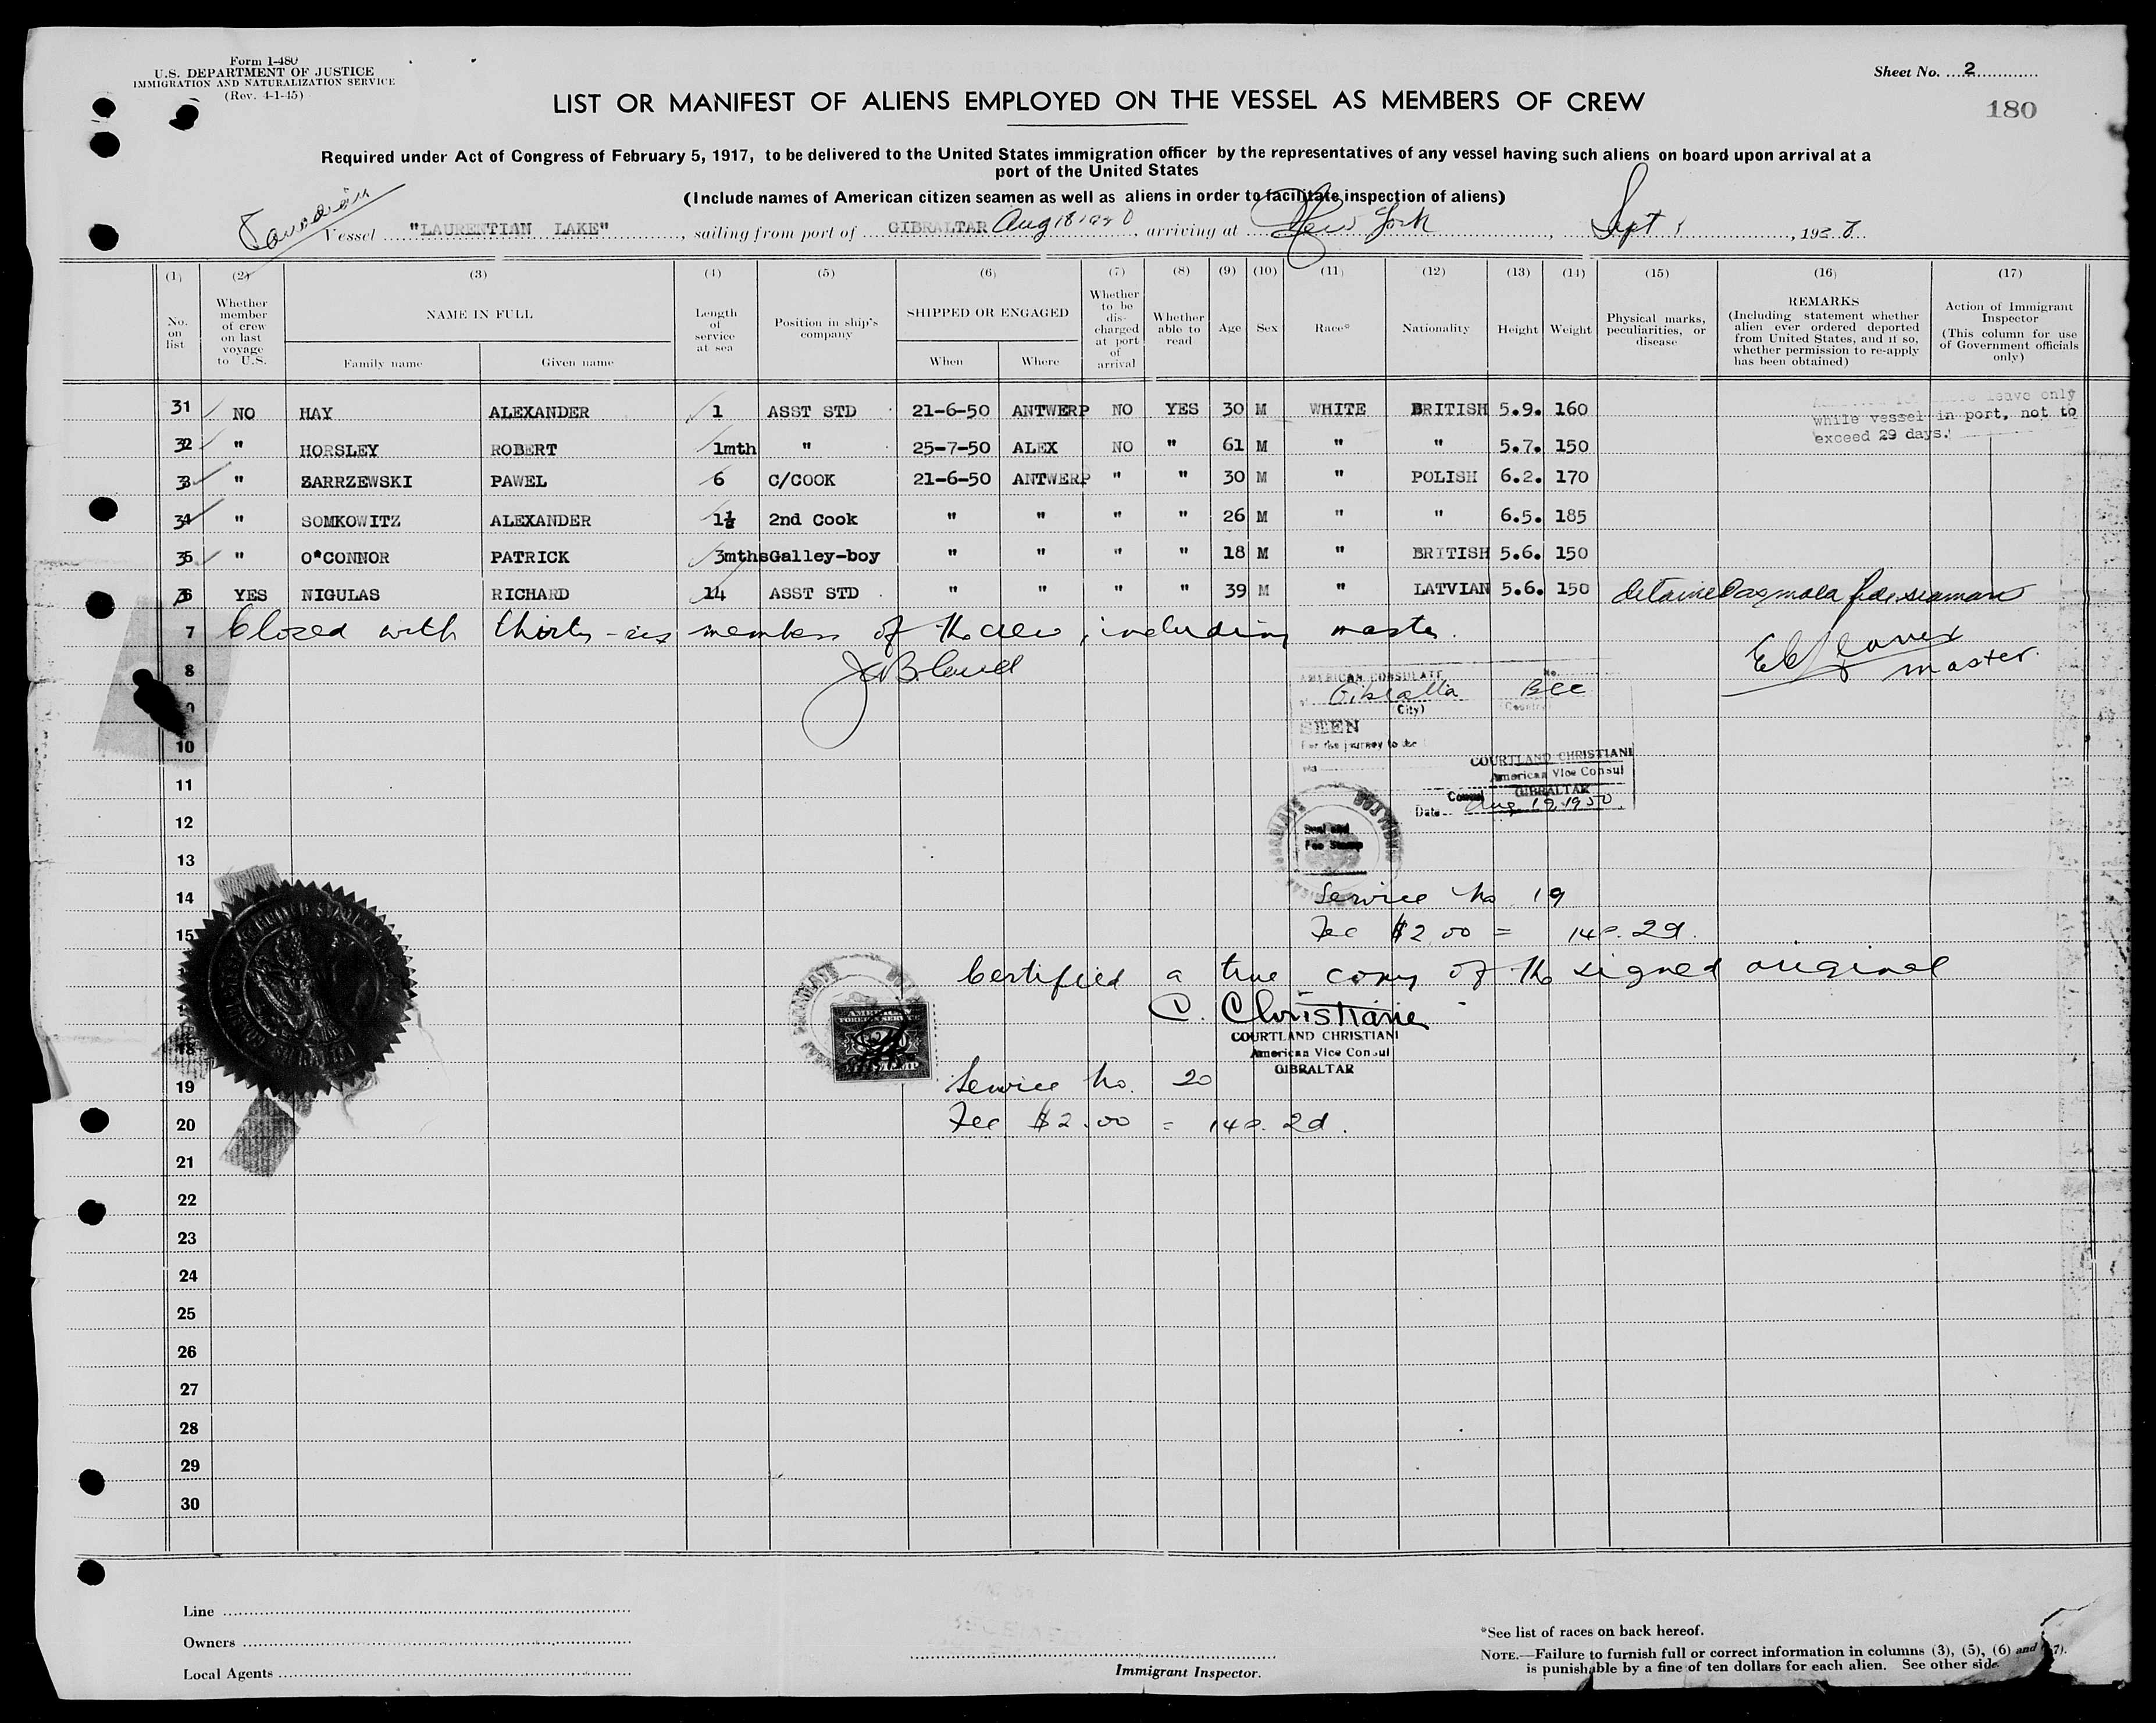 Form I-480
U.S. DEPARTMENT OF JUSTICE
IMMIGRATION AND NATURALIZATION SERVICE
(Rev. 4-1-45)
Sheet No. 2
180
LIST OR MANIFEST OF ALIENS EMPLOYED ON THE VESSEL AS MEMBERS OF CREW
Required under Act of Congress of February 5, 1917, to be delivered to the United States immigration officer by the representatives of any vessel having such aliens on board upon arrival at a
port of the United States
(Include names of American citizen seamen as well as aliens in order to facilitate inspection of aliens)
Vessel "LAURENTIAN LAKE", sailing from port of GIBRALTAR Aug 18 1950, arriving at New York, Sept 1, 19
(1) (2) (3) (4) (5) (6) (7) (8) (9) (10) (11) (12) (13) (14) (15) (16) (17)
No. on list
Whether member of crew on last voyage to U.S.
NAME IN FULL
Family name
Given name
Length of service at sea
Position in ship's company
SHIPPED OR ENGAGED
When
Where
Whether to be discharged at port of arrival
Whether able to read
Age
Sex
Race*
Nationality
Height
Weight
Physical marks, peculiarities, or disease
REMARKS
(Including statement whether alien ever ordered deported from United States, and if so, whether permission to re-apply has been obtained)
Action of Immigrant Inspector
(This column for use of Government officials only)
31 NO HAY ALEXANDER 1 ASST STD 21-6-50 ANTWERP NO YES 30 M WHITE BRITISH 5.9. 160
leave only
while vessel in port, not to
exceed 29 days.
32 " HORSLEY ROBERT 1mth " 25-7-50 ALEX NO " 61 M " " 5.7. 150
33 " ZARRZEWSKI PAWEL 6 C/COOK 21-6-50 ANTWERP " " 30 M " POLISH 6.2. 170
34 " SOMKOWITZ ALEXANDER 1½ 2nd Cook " " " " 26 M " " 6.5. 185
35 " O*CONNOR PATRICK 3mths Galley-boy " " " " 18 M " BRITISH 5.6. 150
36 YES NIGULAS RICHARD 14 ASST STD " " " " 39 M " LATVIAN 5.6. 150 detained as mala fide seaman
7 Closed with thirty-six members of the crew, including master.
8
master.
AMERICAN CONSULATE
(City)
(Country)
9
SEEN
For the journey to the
10
via
COURTLAND CHRISTIANI
American Vice Consul
11
Consul GIBRALTAR
Date Aug 19, 1950
12
Seal and
Fee Stamp
13
14 Service No 19
15 Fee $2.00 = 14s. 2d.
Certified a true copy of the signed original
C. Christiani
COURTLAND CHRISTIANI
American Vice Consul
GIBRALTAR
18
19 Service No. 20
20 Fee $2.00 = 14s. 2d.
21
22
23
24
25
26
27
28
29
30
Line
Owners
Local Agents
Immigrant Inspector.
*See list of races on back hereof.
NOTE.—Failure to furnish full or correct information in columns (3), (5), (6) and (7).
is punishable by a fine of ten dollars for each alien. See other side.